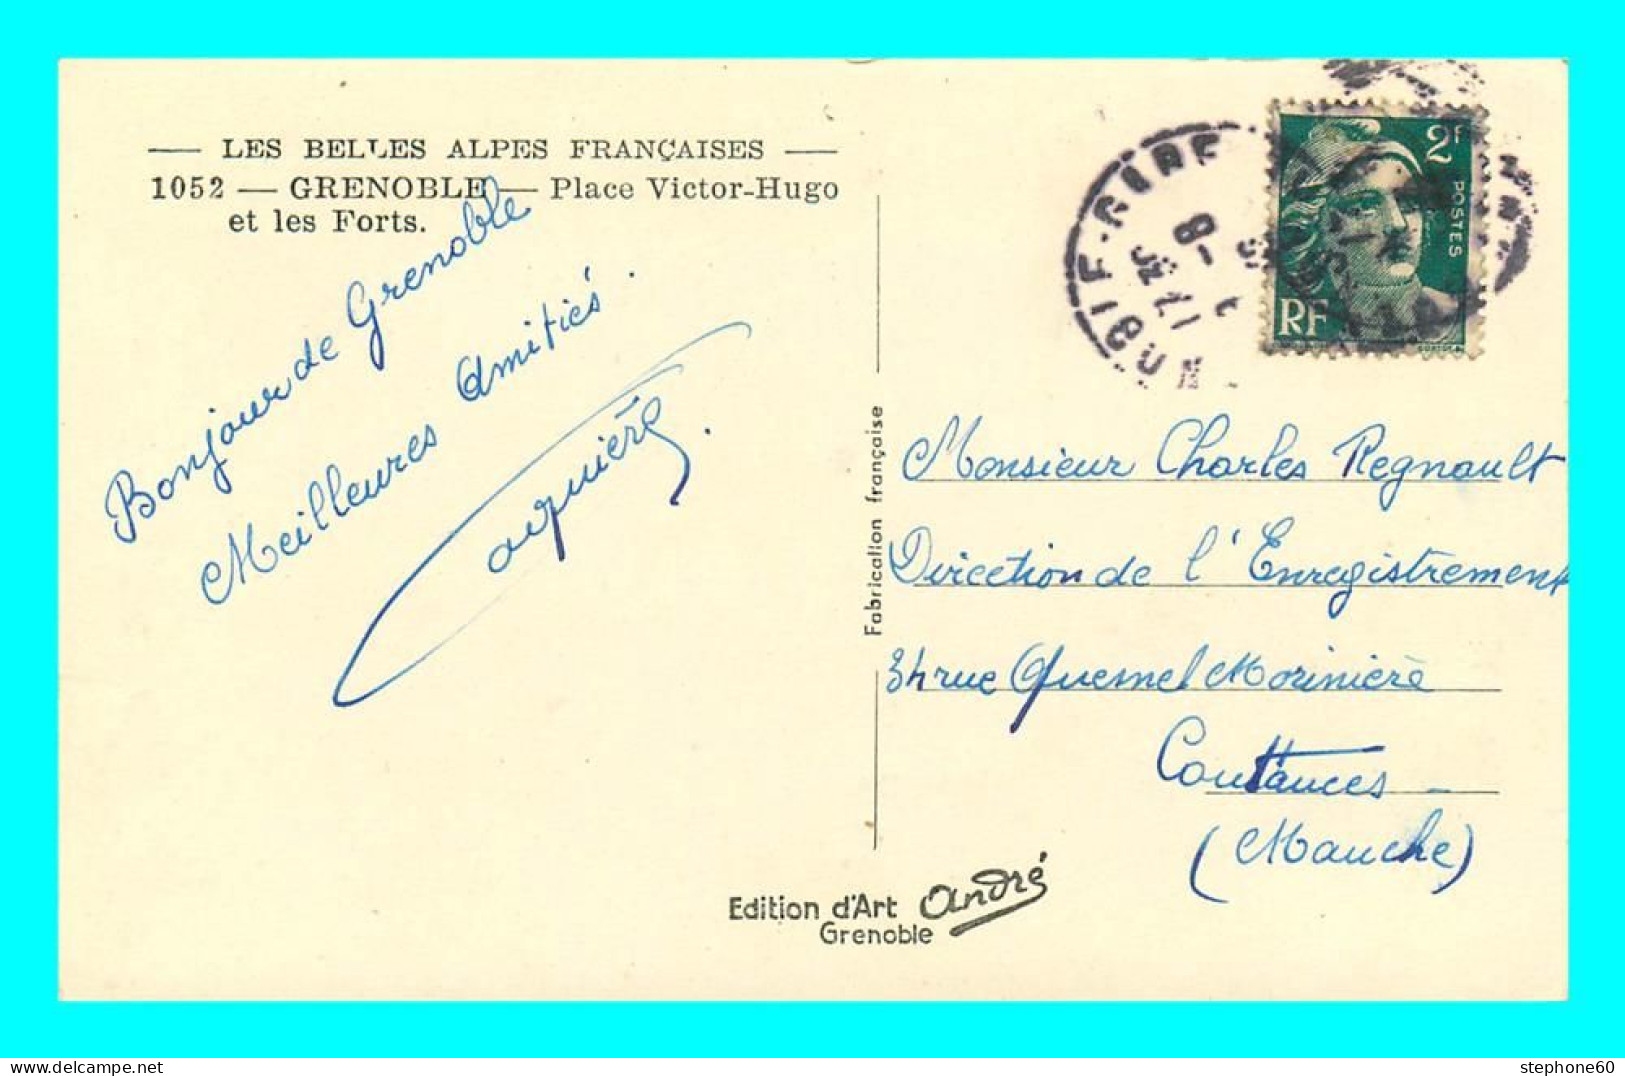 — LES BELLES ALPES FRANÇAISES —
1052 — GRENOBLE — Place Victor-Hugo
et les Forts.
Bonjour de Grenoble
Meilleures Amitiés.
Fabrication française
2F
POSTES
RF
17 45
-8
Monsieur Charles Regnault
Direction de l'Enregistrement
34 rue Quesnel Morinière
Coutances -
(Manche)
Edition d'Art André
Grenoble
stephone60